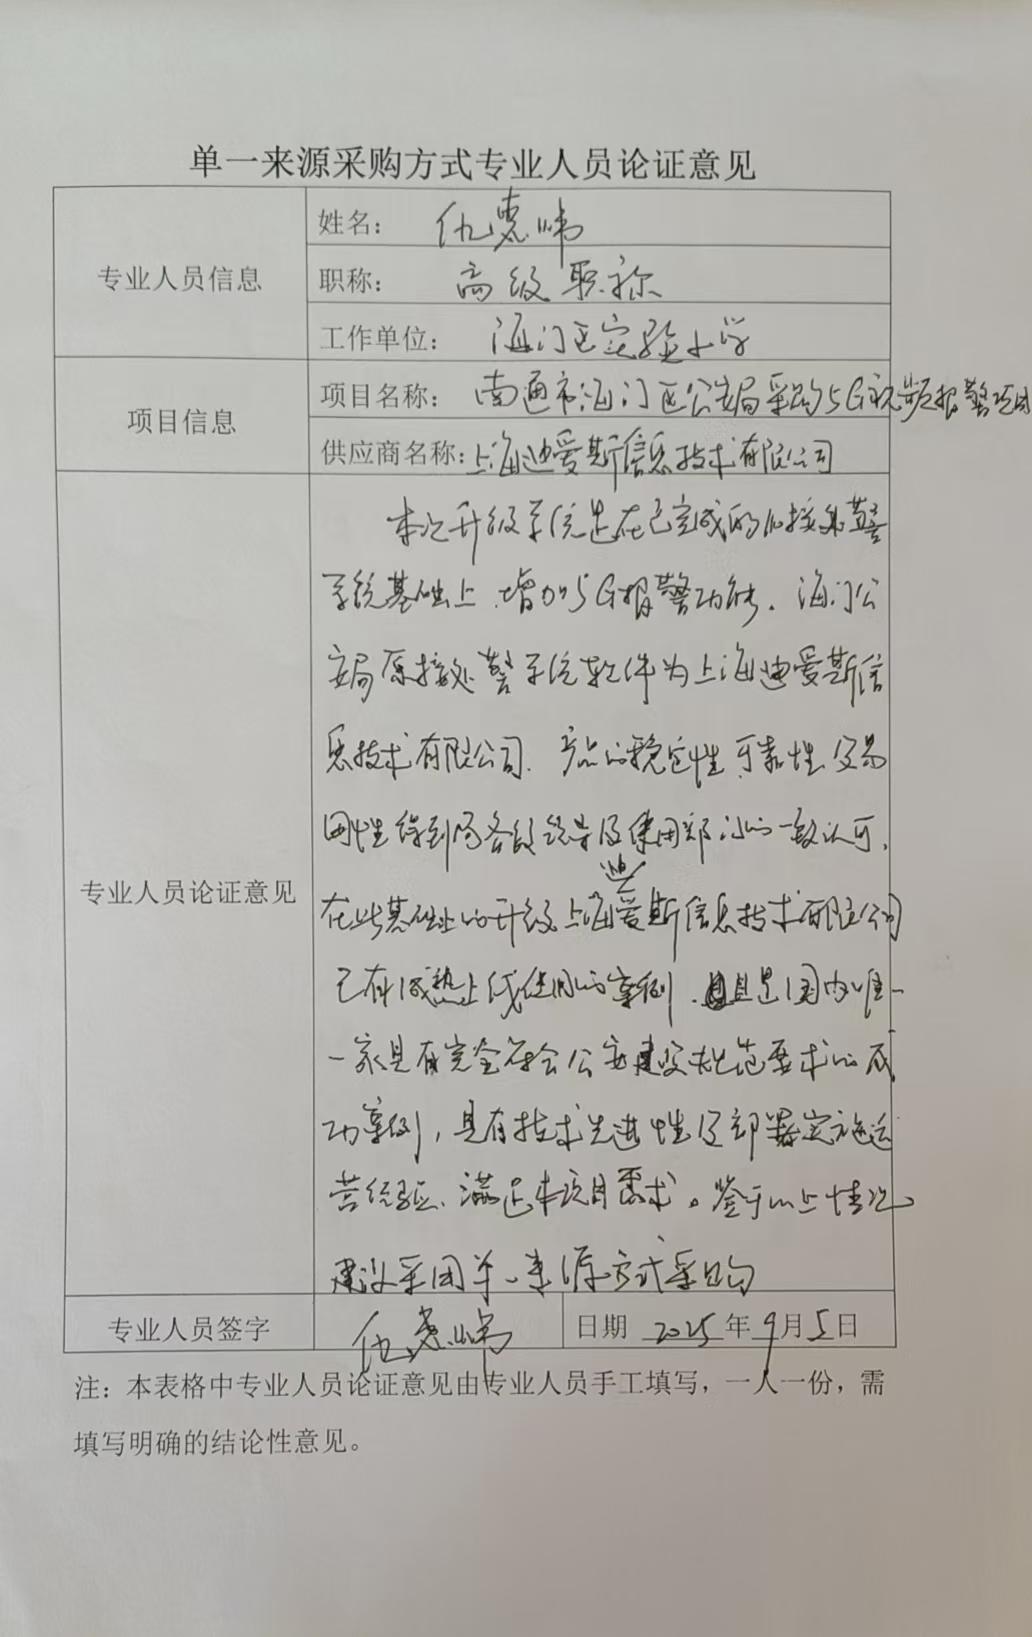 单一来源采购方式专业人员论证意见
专业人员信息
姓名： 仇惠
职称： 高级职称
工作单位： 海门区实验小学
项目信息
项目名称： 南通市海门区公安局采购5G视频报警项目
供应商名称：上海迪爱斯信息技术有限公司
专业人员论证意见
本次升级系统是在已完成的的接处警
系统基础上，增加5G报警功能。海门公
安局原接处警系统软件为上海迪爱斯信
息技术有限公司，产品的稳定性、可靠性及易
用性得到局各级领导及使用部门的一致认可，
在此基础上的升级上海迪爱斯信息技术有限公司
已有成熟上线使用的案例，且是国内唯一
一家具有完全符合公安建设规范要求的成
功案例，具有技术先进性及部署实施运
营经验、满足本项目需求。鉴于以上情况
建议采用单一来源方式采购
专业人员签字
仇惠
日期 2025年9月5日
注：本表格中专业人员论证意见由专业人员手工填写，一人一份，需
填写明确的结论性意见。